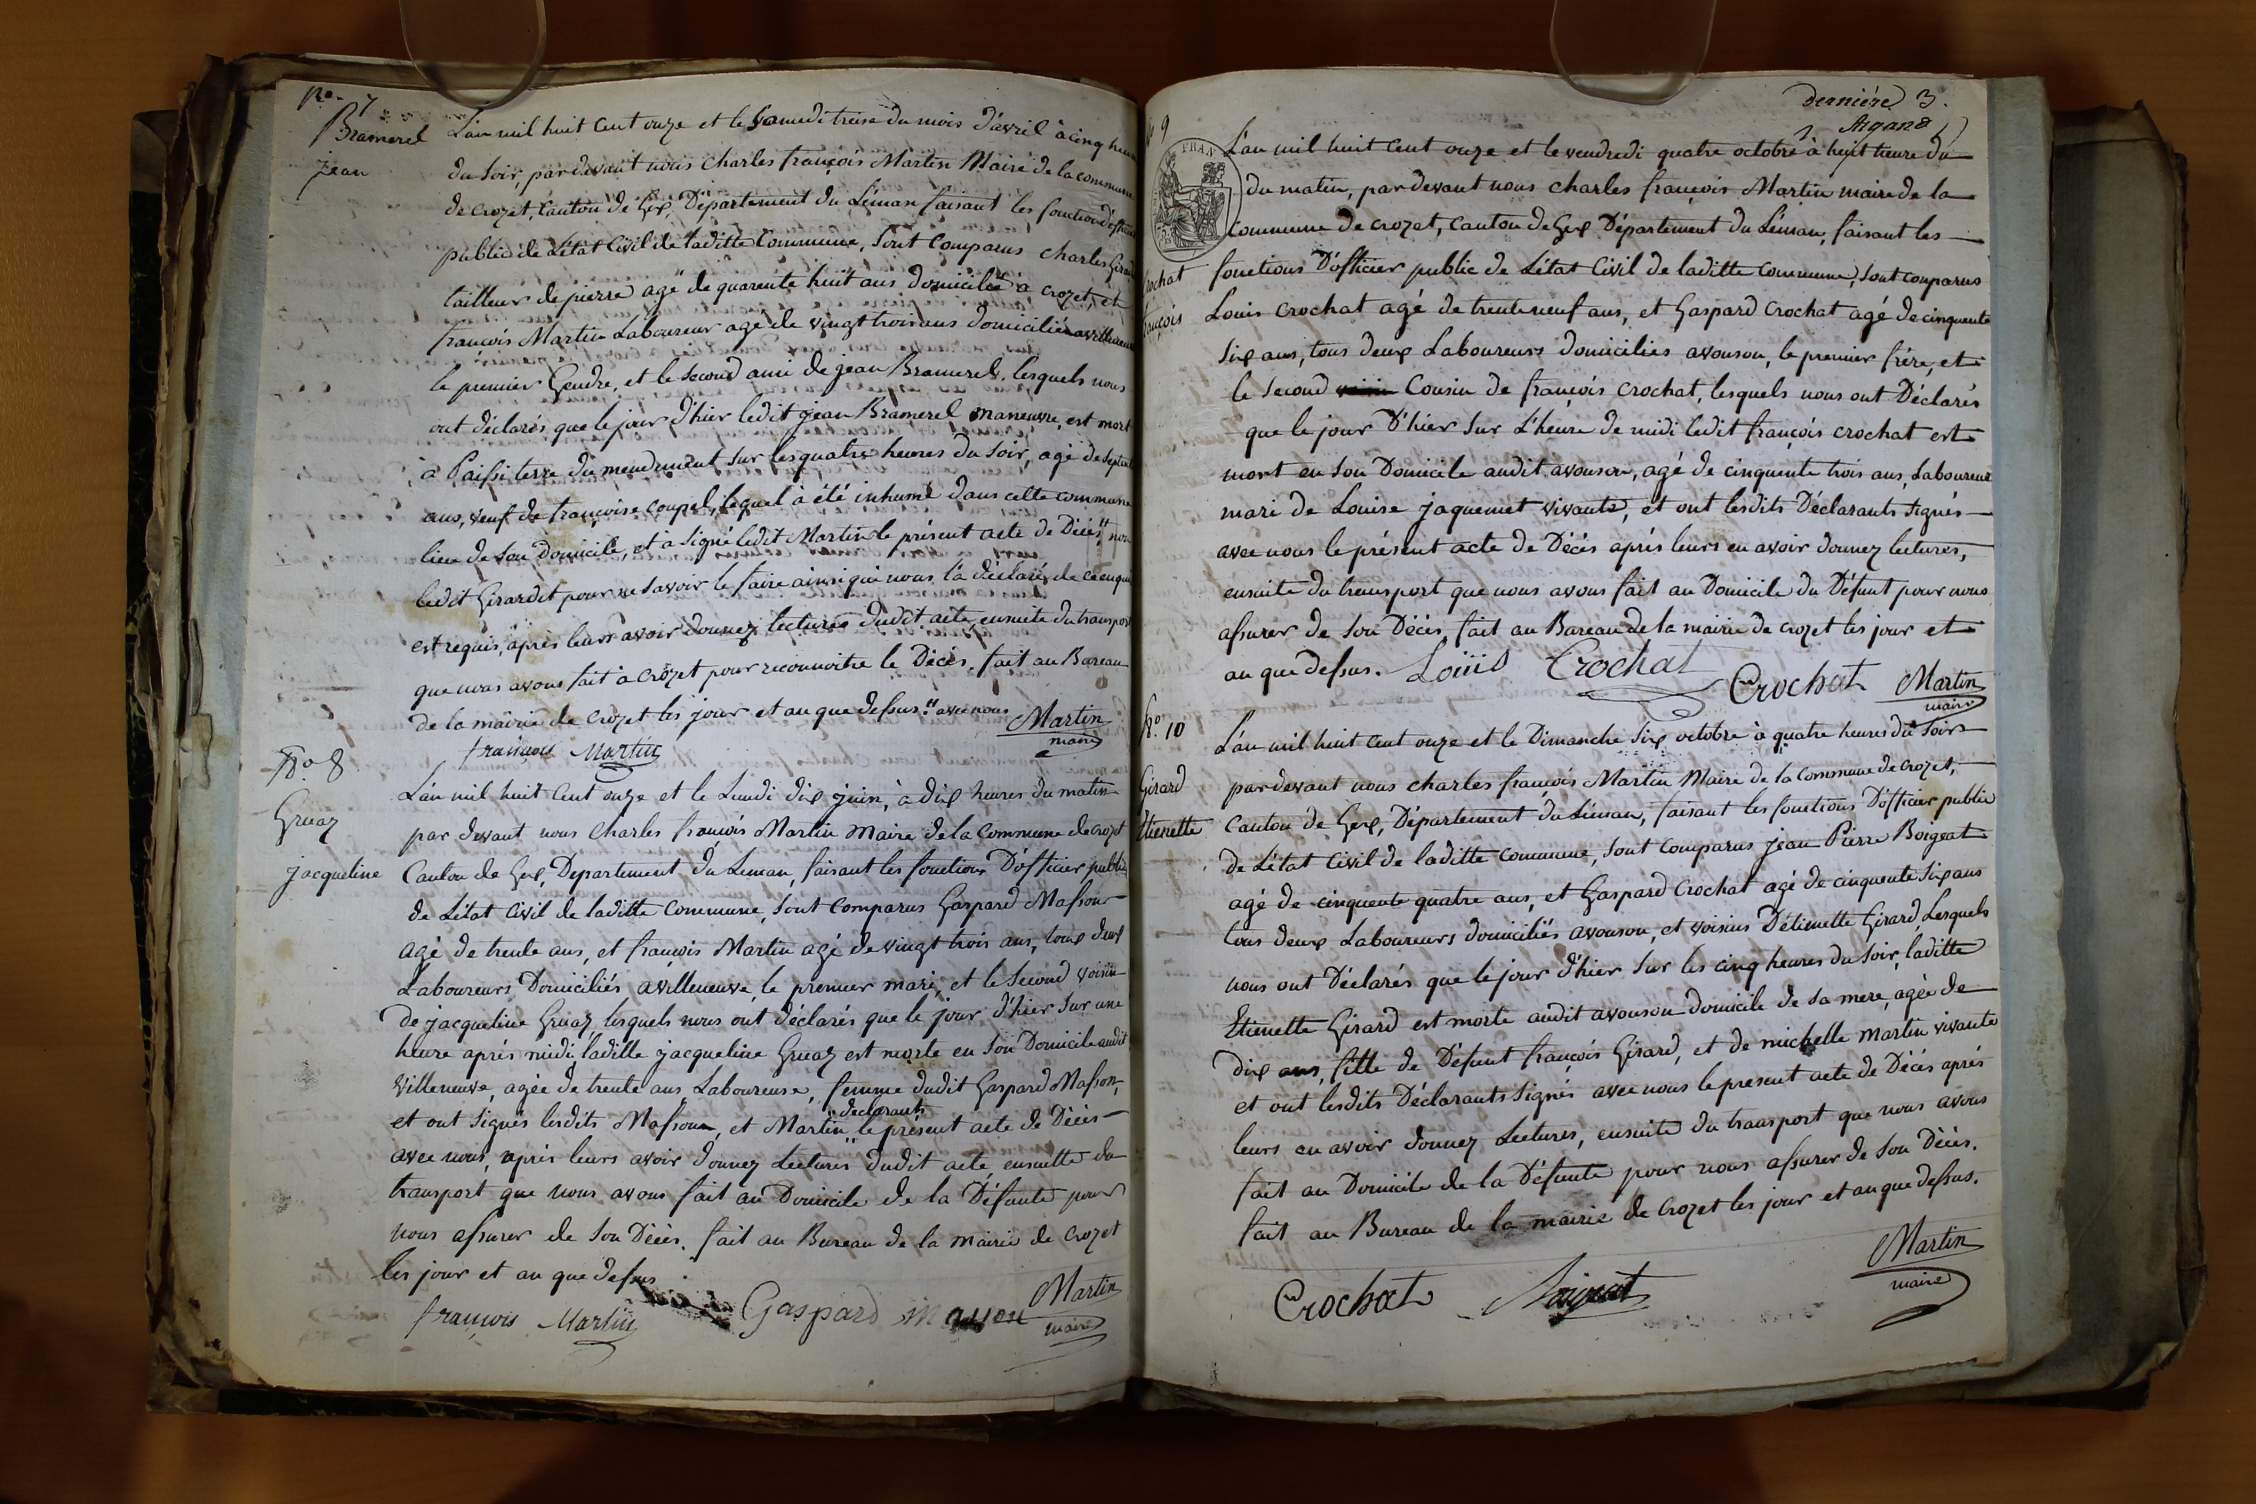 No. 7
Bramerel
jean
L'an mil huit cent onze et le Samedi treise du mois d'avril à cinq heures
du soir, par devant nous charles françois Martin Maire de la commune
de crozet, canton de Gex, Département du Léman faisant les fonctions d'officier
public de L'état Civil de laditte Commune, sont comparus charles
tailleur de pierre agé de quarente huit ans domicilié a crozet, et
françois Martin Laboureur agé de vingt trois ans domicilié avilleneuve
le premier Gendre, et le second ami de jean Bramerel. lesquels nous
ont déclarés que le jour d'hier ledit jean Bramerel maneuvre, est mort
à terre du mendement sur les quatre heures du soir, agé de
ans, veuf de françoise coupel, lequel à été inhumé dans cette commune
lieu de son domicile, et à signé ledit Martin le présent acte de Décés, non
ledit Girardet pour ne savoir le faire ainsi qui nous l'a déclaré de ce enquis
est requis, après leurs avoir donnez lectures dudit acte, ensuite du transport
que nous avons fait à crozet pour reconnoitre le Décés. fait au Bureau
de la mairie de crozet les jour et an que dessus." avec nous Martin
françois Martin maire
No. 8
Gruaz
jacqueline
L'an mil huit cent onze et le Lundi dix juin, à dix heures du matin
par devant nous Charles françois Martin Maire de la Commune de crozet
Canton de Gex, Departement du Leman, faisant les fonctions D'officier public
de L'état Civil de laditte Commune, sont Comparus Gaspard Masson
agé de trente ans, et françois Martin agé de vingt trois ans, tous deux
Laboureurs Domiciliés avilleneuve, le premier mari, et le second voisin
De jacqueline Gruaz, lesquels nous ont déclarés que le jour d'hier sur une
heure aprés midi laditte jacqueline Gruaz est morte en son Domicile audit
Villeneuve, agée de trente ans, Laboureuse, femme dudit Gaspard Masson,
et ont signés lesdits Masson, et Martin declarants le présent acte de Décés
avec nous, après leurs avoir donnez Lectures dudit acte ensuitte du
transport que nous avons fait au Domicile de la Défunte pour
nous assurer de son Décés. fait au Bureau de la Mairie de Crozet
les jour et an que dessus
françois Martin Gaspard Masson Martin
maire
derniére 3.
No 9
Crochat
françois
L'an mil huit cent onze et le vendredi quatre octobre à huit heure du
du matin, par devant nous charles françois Martin maire de la
Commune de crozet, canton de Gex Département du Léman, faisant les
fonctions D'officier public de L'état Civil de laditte commune, sont comparus
Louis Crochat agé de trente neuf ans, et Gaspard Crochat agé de cinquente
six ans, tous deux Laboureurs domiciliés avouson, le premier frère, et
le second Cousin de françois crochat, lesquels nous ont Déclarés
que le jour D'hier sur L'heure de midi ledit françois crochat est
mort en son Domicile audit avouson, agé de cinquente trois ans, Laboureur
mari de Louise jaquemet vivante, et ont lesdits Déclarants signés
avec nous le présent acte de Décés aprés leurs en avoir donnez lectures,
ensuite du transport que nous avons fait au Domicile du Défunt pour nous
assurer de son Décés, fait au Bureau de la mairie de crozet les jour et
an que dessus. Louis Crochat Crochat Martin
maire
No. 10
Girard
Etienette
L'an mil huit cent onze et le Dimanche six octobre à quatre heures du soir
par devant nous charles françois Martin Maire de la Commune de crozet,
Canton de Gex, Département du Léman, faisant les fonctions D'officier public
de L'état Civil de laditte commune, sont Comparus jean Pierre Boigeat
agé de cinquente quatre ans, et Gaspard Crochat agé de cinquente six ans
tous deux Laboureurs domiciliés avouson, et voisins D'étienette Girard, Lesquels
nous ont Déclarés que le jour d'hier sur les cinq heures du soir, laditte
Etienette Girard est morte audit avouson domicile de sa mere, agée de
dix ans, fille de Défunt françois Girard, et de michelle Martin vivante
et ont lesdits Déclarants signés avec nous le present acte de Décés aprés
leurs en avoir donnez Lectures, ensuite du transport que nous avons
fait au Domicile de la Défunte pour nous assurer de son Décés.
fait au Bureau de la mairie de Crozet les jour et an que dessus.
Crochat Boigeat Martin
maire